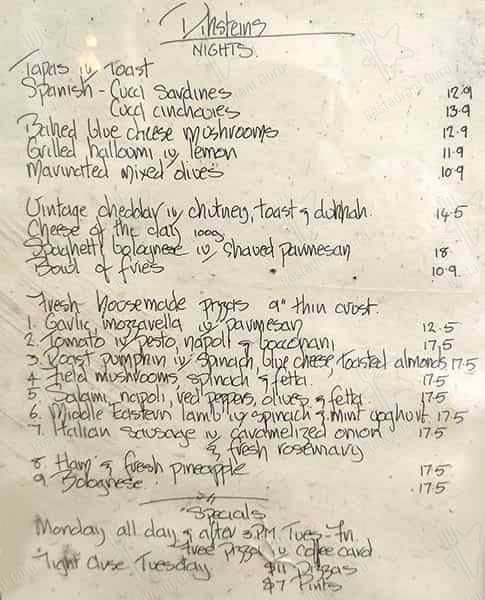 NIGHTS.
Tapas w Toast
Spanish - Cucci Sardines 12.9
Cucci anchovies 13.9
Baked blue cheese mushrooms 12.9
Grilled halloumi w lemon 11.9
Marinated mixed olives 10.9
Vintage cheddar w chutney, toast & dukkah 14.5
Cheese of the day 100g
Spaghetti bolognese w shaved parmesan 18
Bowl of fries 10.9.
Fresh housemade pizzas 9" thin crust.
1. Garlic, mozzarella w parmesan 12.5
2. Tomato w pesto, napoli & bocconcini 17.5
3. Roast pumpkin w spinach, blue cheese, toasted almonds 17.5
4. Field mushrooms, spinach & fetta. 17.5
5. Salami, napoli, red peppers, olives & fetta. 17.5
6. Middle Eastern lamb w spinach & mint yoghurt 17.5
7. Italian sausage w caramelized onion 17.5
& fresh rosemary
8. Ham & fresh pineapple 17.5
9. Bolognese. 17.5
"Specials
Monday all day & after 3PM Tues-Fri
Free Pizza w coffee card
Tight Arse Tuesday $11 Pizzas
$7 Pints